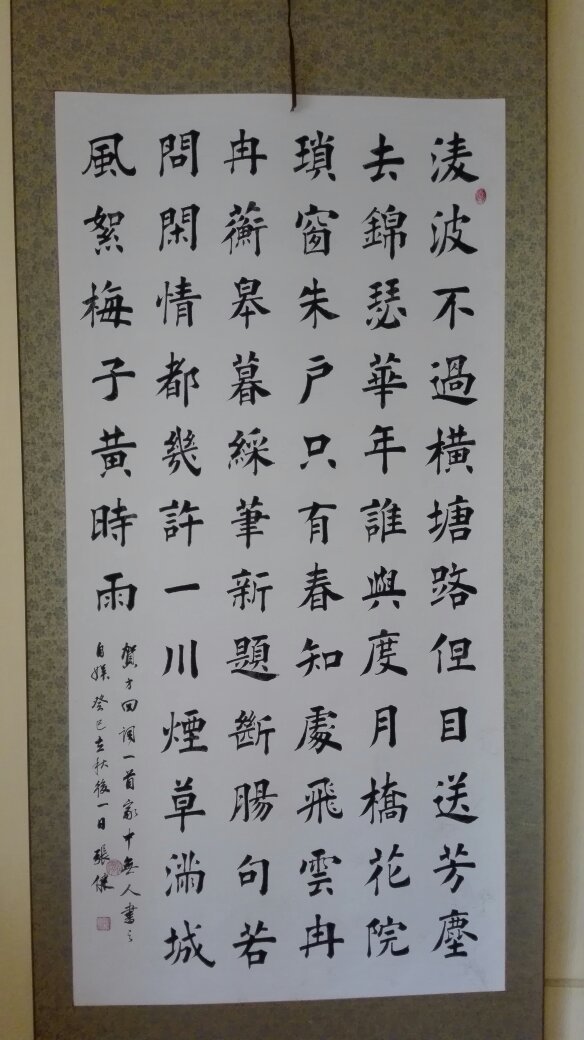 淩波不過橫塘路但目送芳塵
去錦瑟華年誰與度月橋花院
瑣窗朱戶只有春知處飛雲冉
冉蘅皋暮綵筆新題斷腸句若
問閑情都幾許一川煙草滿城
風絮梅子黃時雨
賀方回詞一首家中無人書之
自娛癸巳立秋後一日張傑